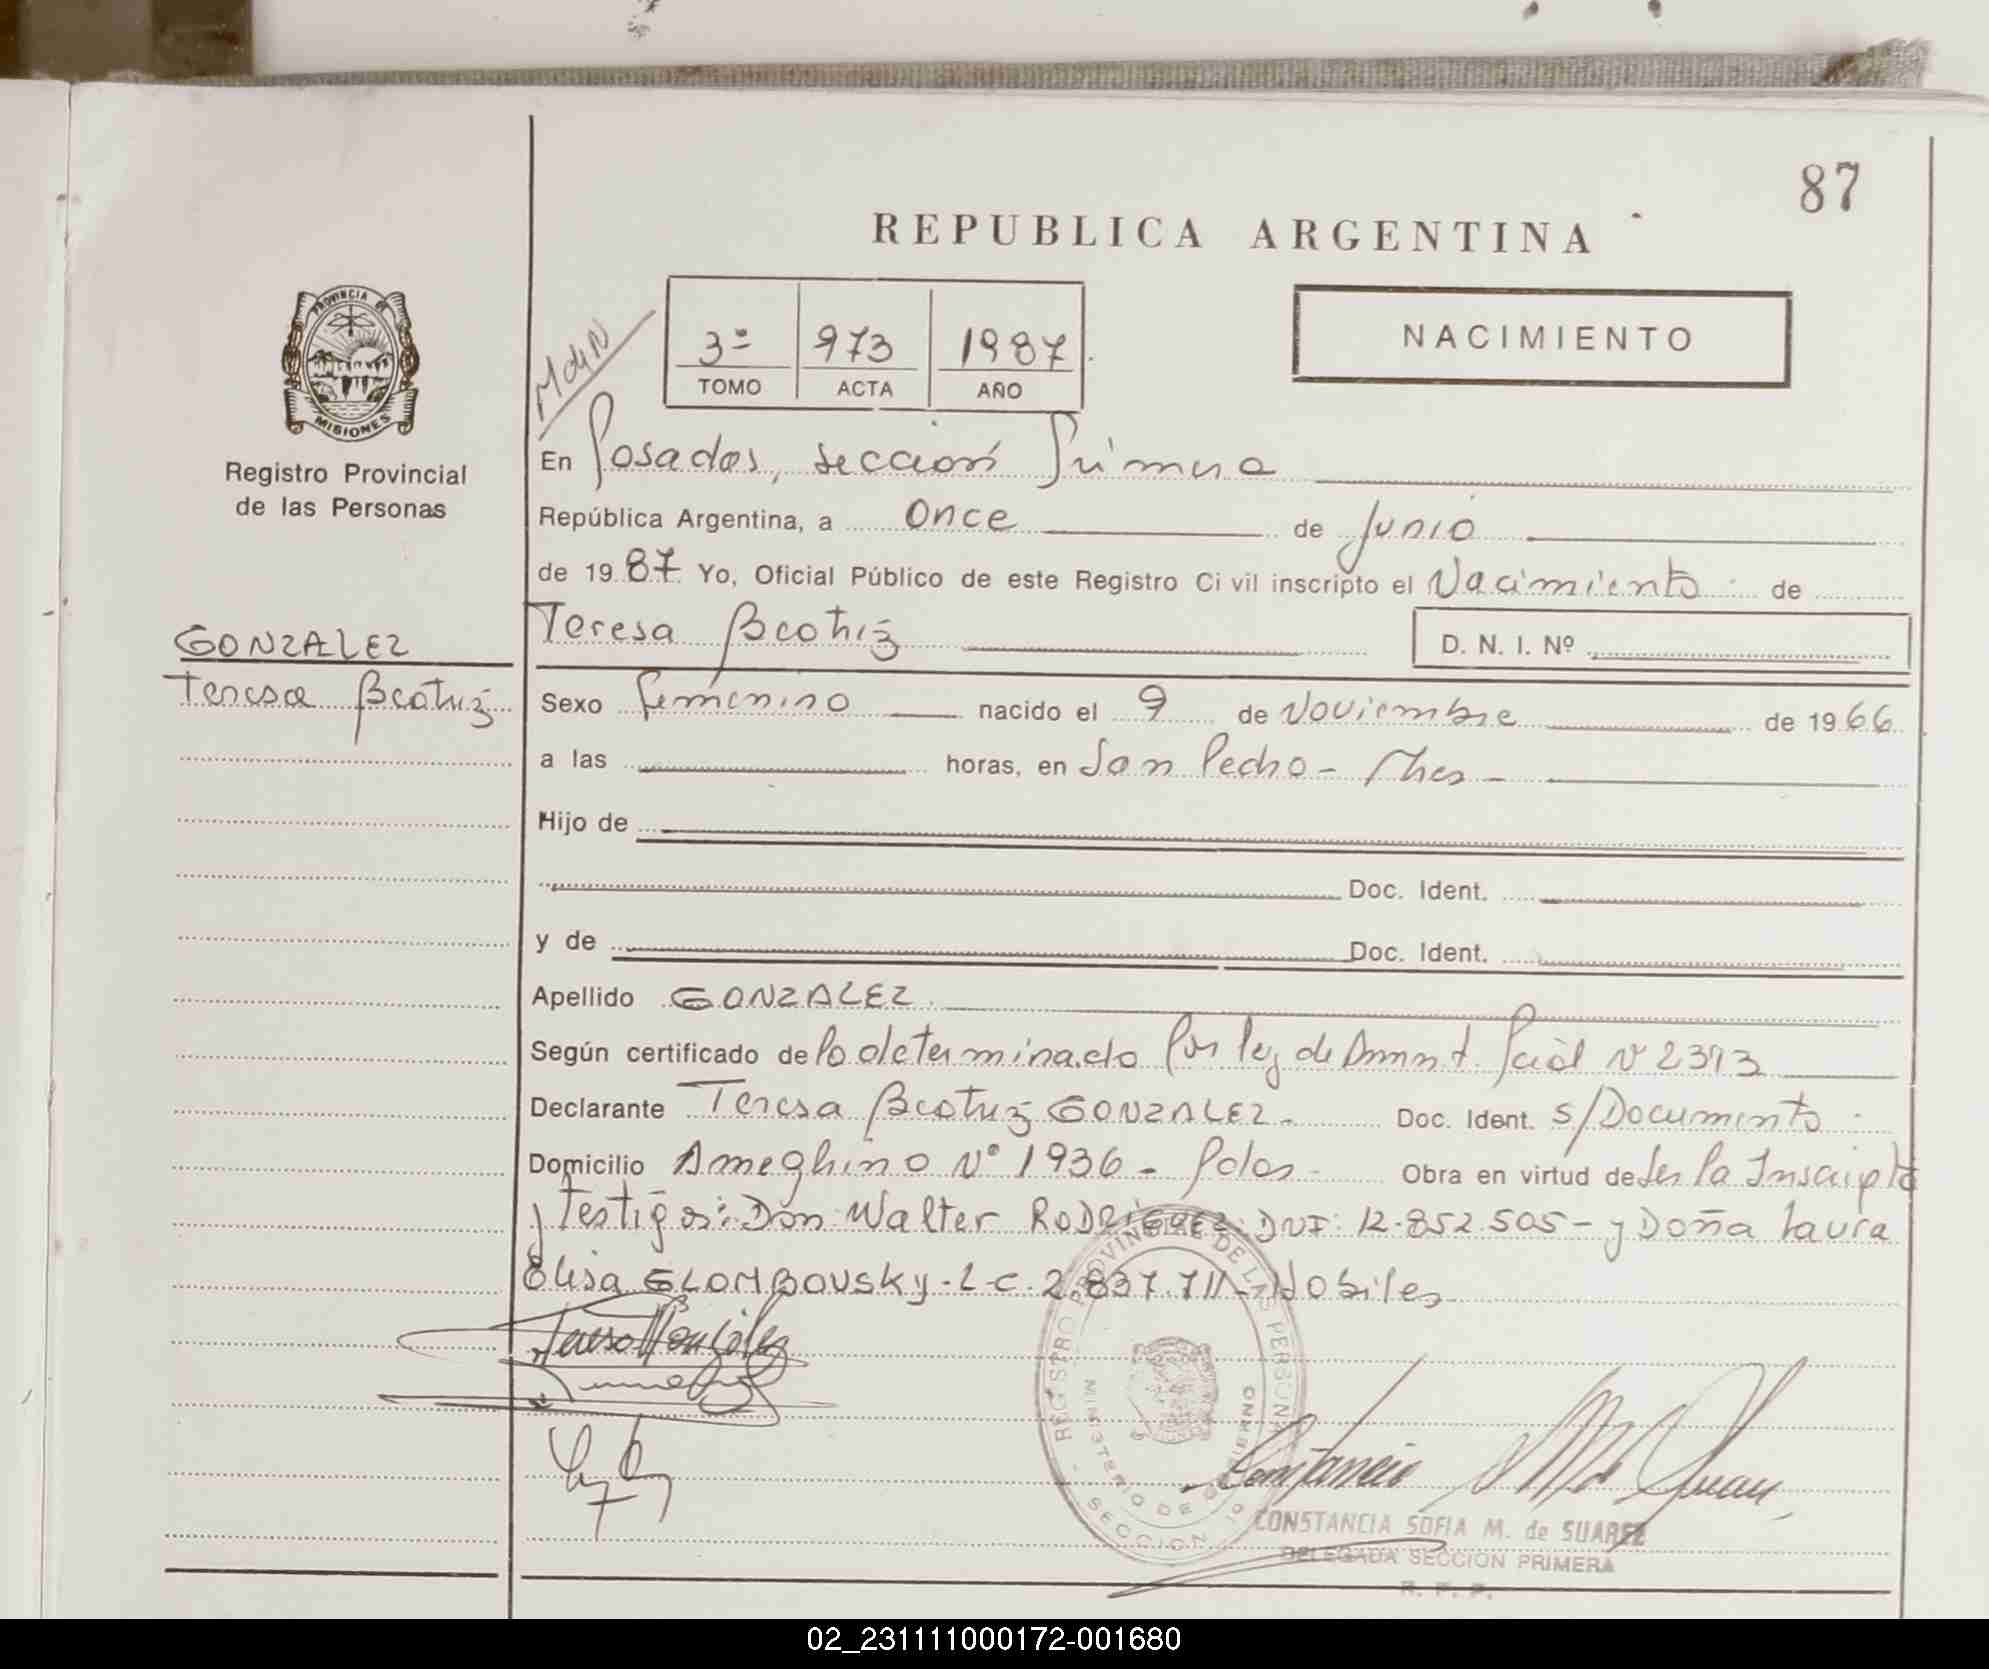 87
REPUBLICA ARGENTINA
NACIMIENTO
3º 973 1987
TOMO ACTA AÑO
PROVINCIA DE
MISIONES
Registro Provincial
de las Personas
En Posadas, sección Primera
República Argentina, a once de Junio
de 1987 Yo, Oficial Público de este Registro Civil inscripto el Nacimiento de
GONZALEZ
Teresa Beatriz
Teresa Beatriz D. N. I. Nº
Sexo femenino nacido el 9 de Noviembre de 1966
a las horas, en San Pedro - Mnes -
Hijo de
Doc. Ident.
y de Doc. Ident.
Apellido GONZALEZ
Según certificado de lo determinado Por ley de N° 2373
Declarante Teresa Beatriz GONZALEZ - Doc. Ident. s/Documento
Domicilio Ameghino Nº 1936 - Pdas - Obra en virtud de Ser la Inscripta
y Testigos: Don Walter RODRIGUEZ: DNI: 12.852.505 - y Doña Laura
Elisa GLOMBOVSKY - L-C. 2.837.711 - Hobiles
Teresa B González
REGISTRO PROVINCIAL DE LAS PERSONAS
MINISTERIO DE GOBIERNO
SECCION 1º
CONSTANCIA SOFIA M. de SUAREZ
DELEGADA SECCION PRIMERA
R. P. P.
02_231111000172-001680